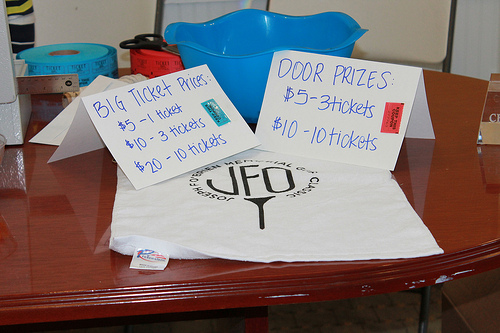 BIG TICKET PRIZES:
$5 - 1 ticket
$10 - 3 tickets
$20 - 10 tickets
DOOR PRIZES:
$5 - 3 tickets
$10 - 10 tickets
JOSEPH F. O'BRIEN MEMORIAL CLASSIC
JFO